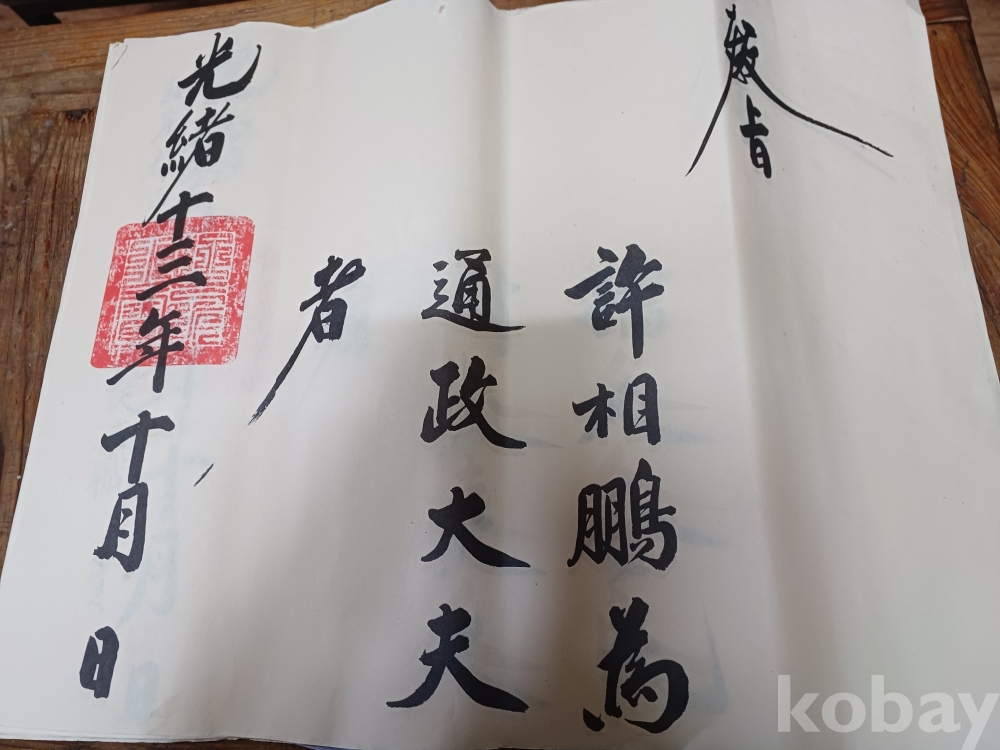 敎旨
許相鵬爲
通政大夫
者
光緖十三年十月 日
kobay